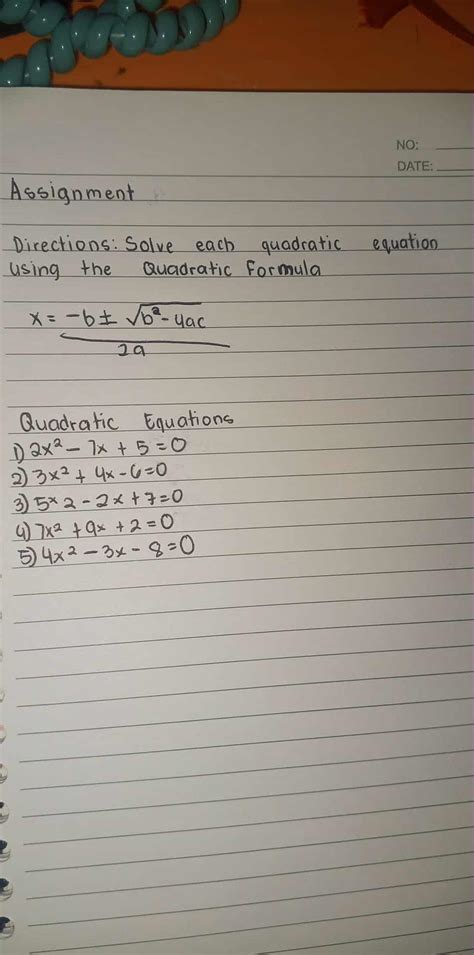 NO:
DATE:
Assignment
Directions: Solve each quadratic equation
using the Quadratic Formula
x = -b ± √b²-4ac
2a
Quadratic Equations
1) 2x² - 7x + 5 = 0
2) 3x² + 4x - 6 = 0
3) 5x2 - 2x + 7 = 0
4) 7x² + 9x + 2 = 0
5) 4x² - 3x - 8 = 0